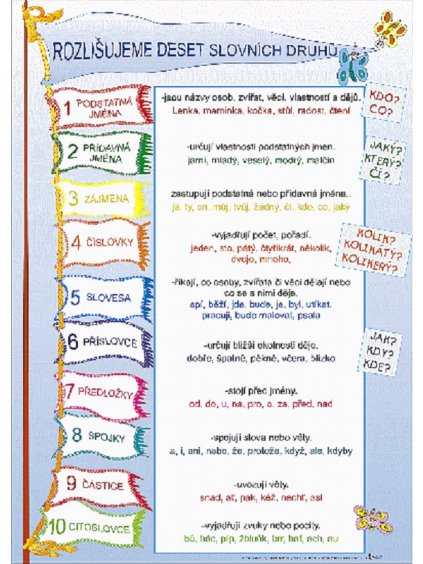 ROZLIŠUJEME DESET SLOVNÍCH DRUHŮ
1 PODSTATNÁ
JMÉNA
-jsou názvy osob, zvířat, věcí, vlastností a dějů.
Lenka, maminka, kočka, stůl, radost, čtení
KDO?
CO?
2 PŘÍDAVNÁ
JMÉNA
-určují vlastnosti podstatných jmen.
jarní, mladý, veselý, modrý, matčin
JAKÝ?
KTERÝ?
ČÍ?
3 ZÁJMENA
zastupují podstatná nebo přídavná jména..
já, ty, on, můj, tvůj, žádný, či, kdo, co, jaký
4 ČÍSLOVKY
-vyjadřují počet, pořadí.
jeden, sto, pátý, čtyřikrát, několik,
dvoje, mnoho,
KOLIK?
KOLIKÁTÝ?
KOLIKERÝ?
5 SLOVESA
-říkají, co osoby, zvířata či věci dělají nebo
co se s nimi děje.
spí, běží, jde, bude, je, byl, utíkat,
pracuji, bude malovat, psala
6 PŘÍSLOVCE
-určují bližší okolnosti děje.
dobře, špatně, pěkně, včera, blízko
JAK?
KDY?
KDE?
7 PŘEDLOŽKY
-stojí před jmény.
od, do, u, na, pro, o, za, před, nad
8 SPOJKY
-spojují slova nebo věty.
a, i, ani, nebo, že, protože, když, ale, kdyby
9 ČÁSTICE
-uvozují věty.
snad, ať, pak, kéž, nechť, asi
10 CITOSLOVCE
-vyjadřují zvuky nebo pocity.
bú, bác, píp, žbluňk, brr, haf, ach, au